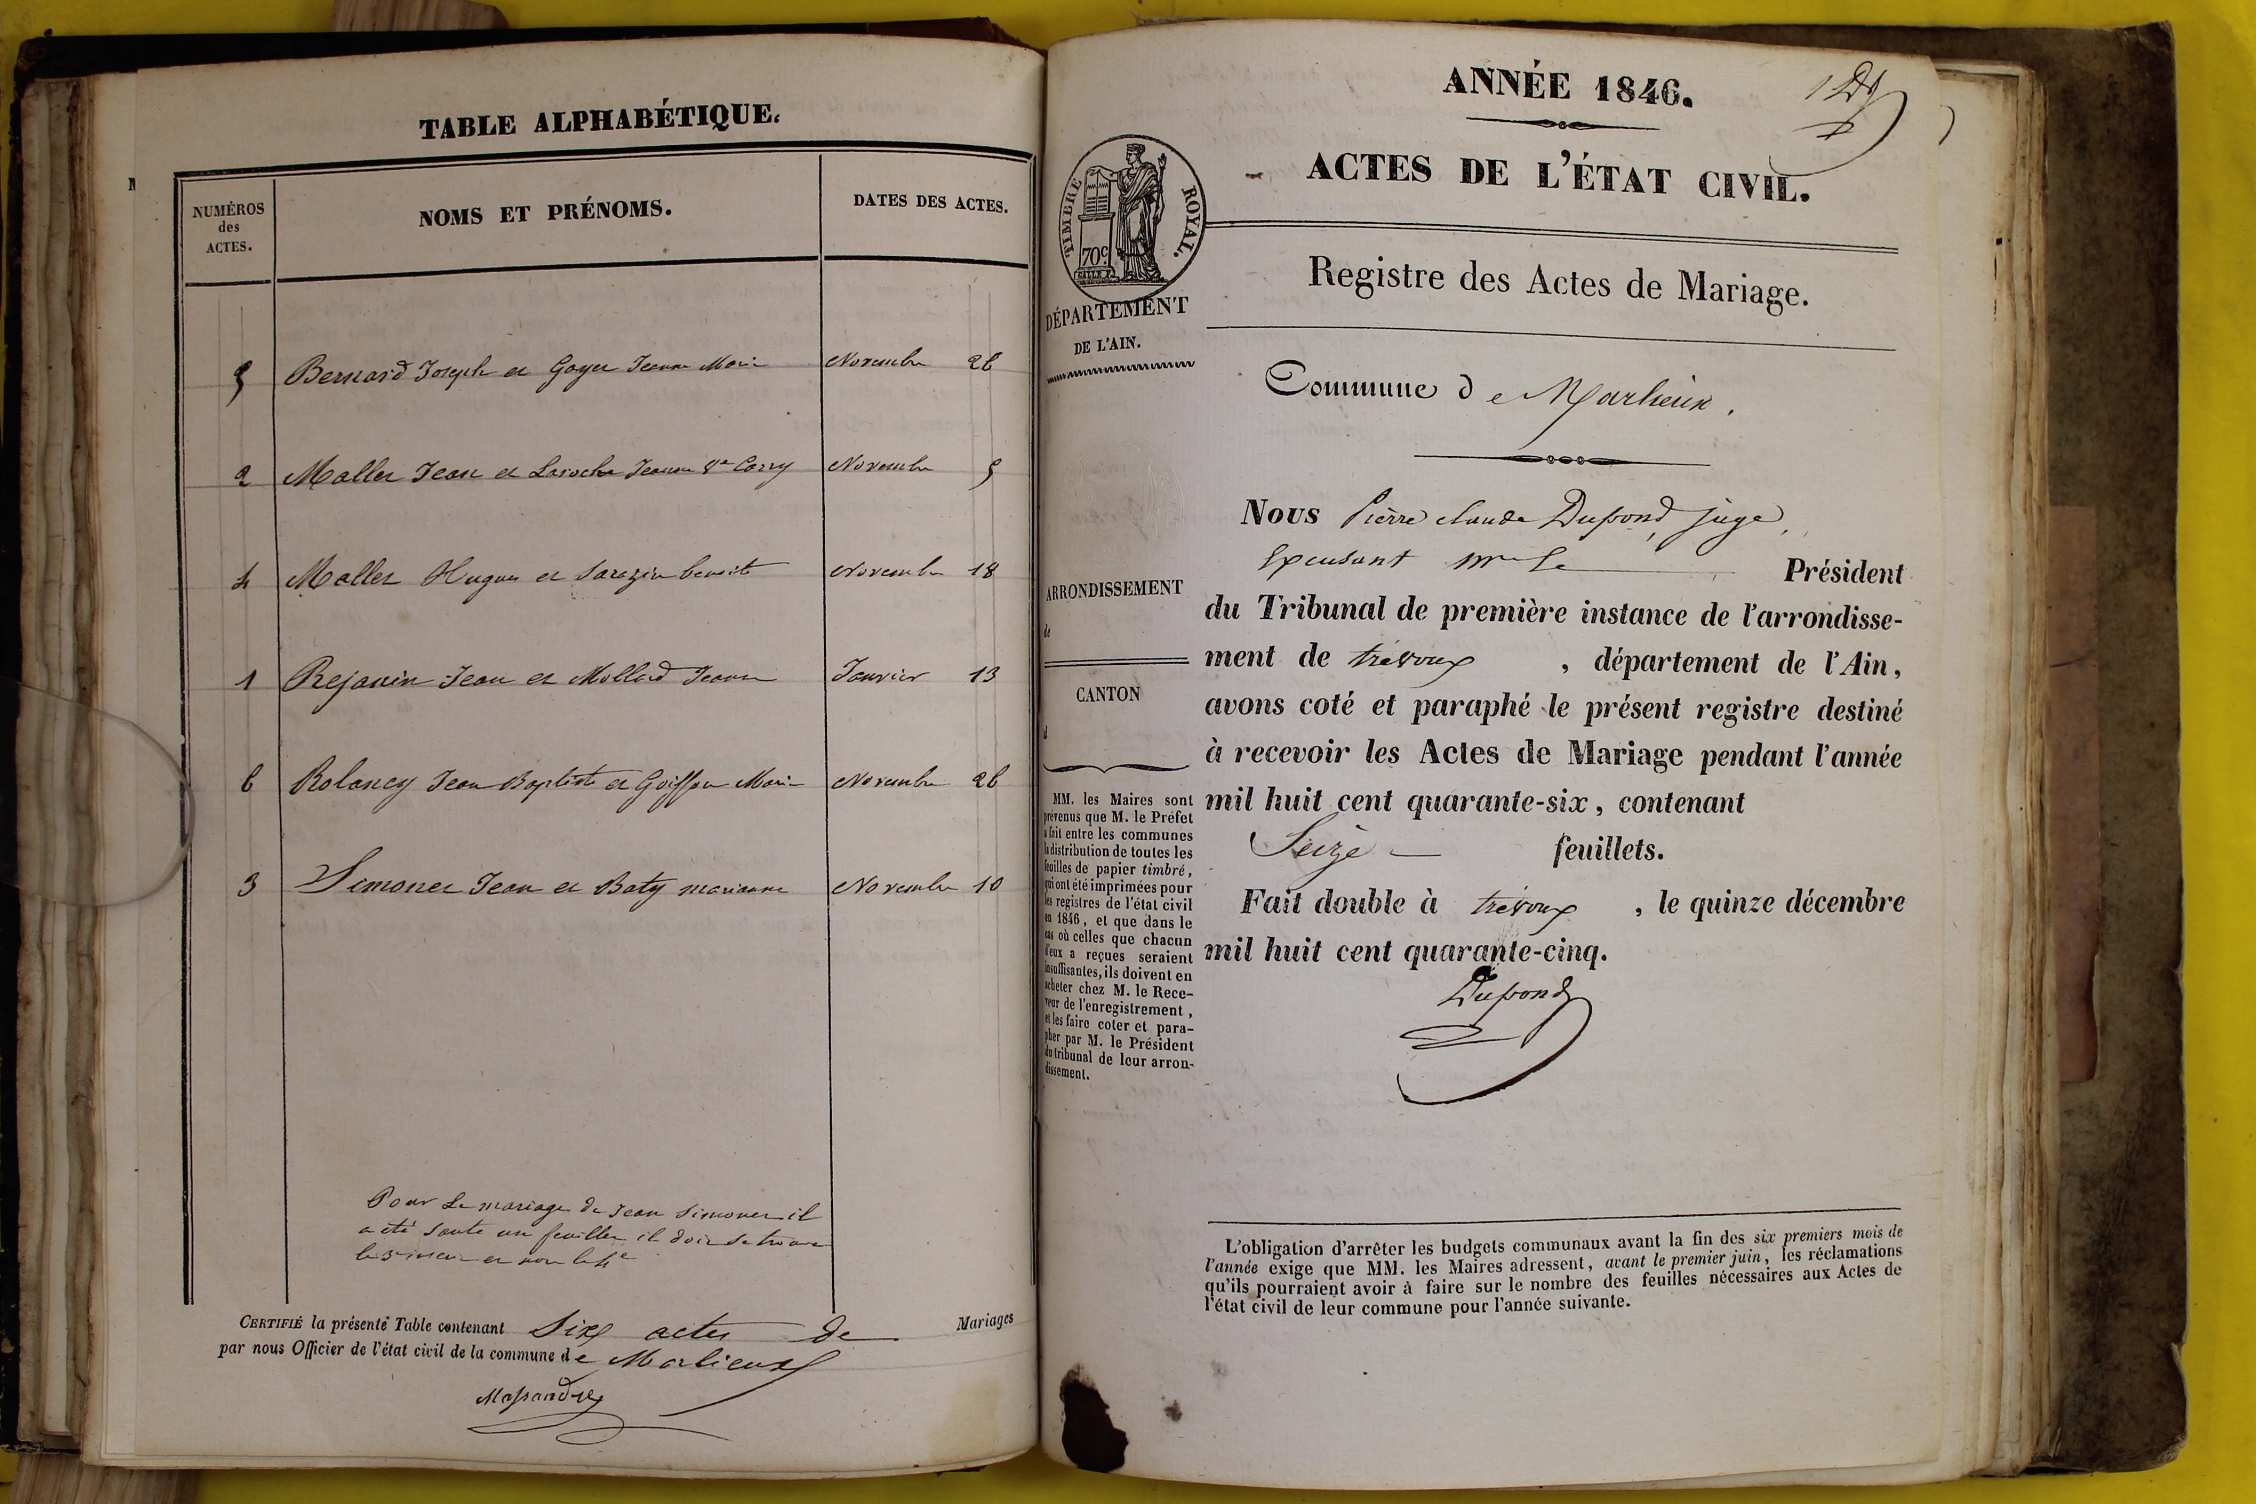 TABLE ALPHABÉTIQUE.
NUMÉROS des ACTES.
NOMS ET PRÉNOMS.
DATES DES ACTES.
5 Bernard Joseph et Goyer Jeanne Marie Novembre 26
2 Mallet Jean et Laroche Jeanne Ve Carry Novembre 5
4 Mallet Hugues et Sarazin benoite Novembre 18
1 Rejanin Jean et Mollard Jeanne Janvier 13
6 Rolancy Jean Baptiste et Goiffon Marie Novembre 26
3 Simonet Jean et Baty marianne Novembre 10
Pour le mariage de Jean Simonet il
a été sauté un feuillet il doit se trouver
le 3e et non le 4e
CERTIFIÉ la présente Table contenant Six actes de Mariages
par nous Officier de l'état civil de la commune de Marlieux
ANNÉE 1846.
ACTES DE L'ÉTAT CIVIL.
TIMBRE ROYAL.
70c
DÉPARTEMENT
DE L'AIN.
Registre des Actes de Mariage.
Commune de Marlieux.
ARRONDISSEMENT
de
CANTON
d
MM. les Maires sont
prévenus que M. le Préfet
a fait entre les communes
la distribution de toutes les
feuilles de papier timbré,
qui ont été imprimées pour
les registres de l'état civil
en 1846, et que dans le
cas où celles que chacun
d'eux a reçues seraient
insuffisantes, ils doivent en
acheter chez M. le Rece-
veur de l'enregistrement,
et les faire coter et para-
pher par M. le Président
du tribunal de leur arron-
dissement.
Nous Pierre claude Dupond, juge,
Excusant mr le Président
du Tribunal de première instance de l'arrondisse-
ment de trévoux, département de l'Ain,
avons coté et paraphé le présent registre destiné
à recevoir les Actes de Mariage pendant l'année
mil huit cent quarante-six, contenant
Seize feuillets.
Fait double à trévoux, le quinze décembre
mil huit cent quarante-cinq.
Dupond
L'obligation d'arrêter les budgets communaux avant la fin des six premiers mois de
l'année exige que MM. les Maires adressent, avant le premier juin, les réclamations
qu'ils pourraient avoir à faire sur le nombre des feuilles nécessaires aux Actes de
l'état civil de leur commune pour l'année suivante.